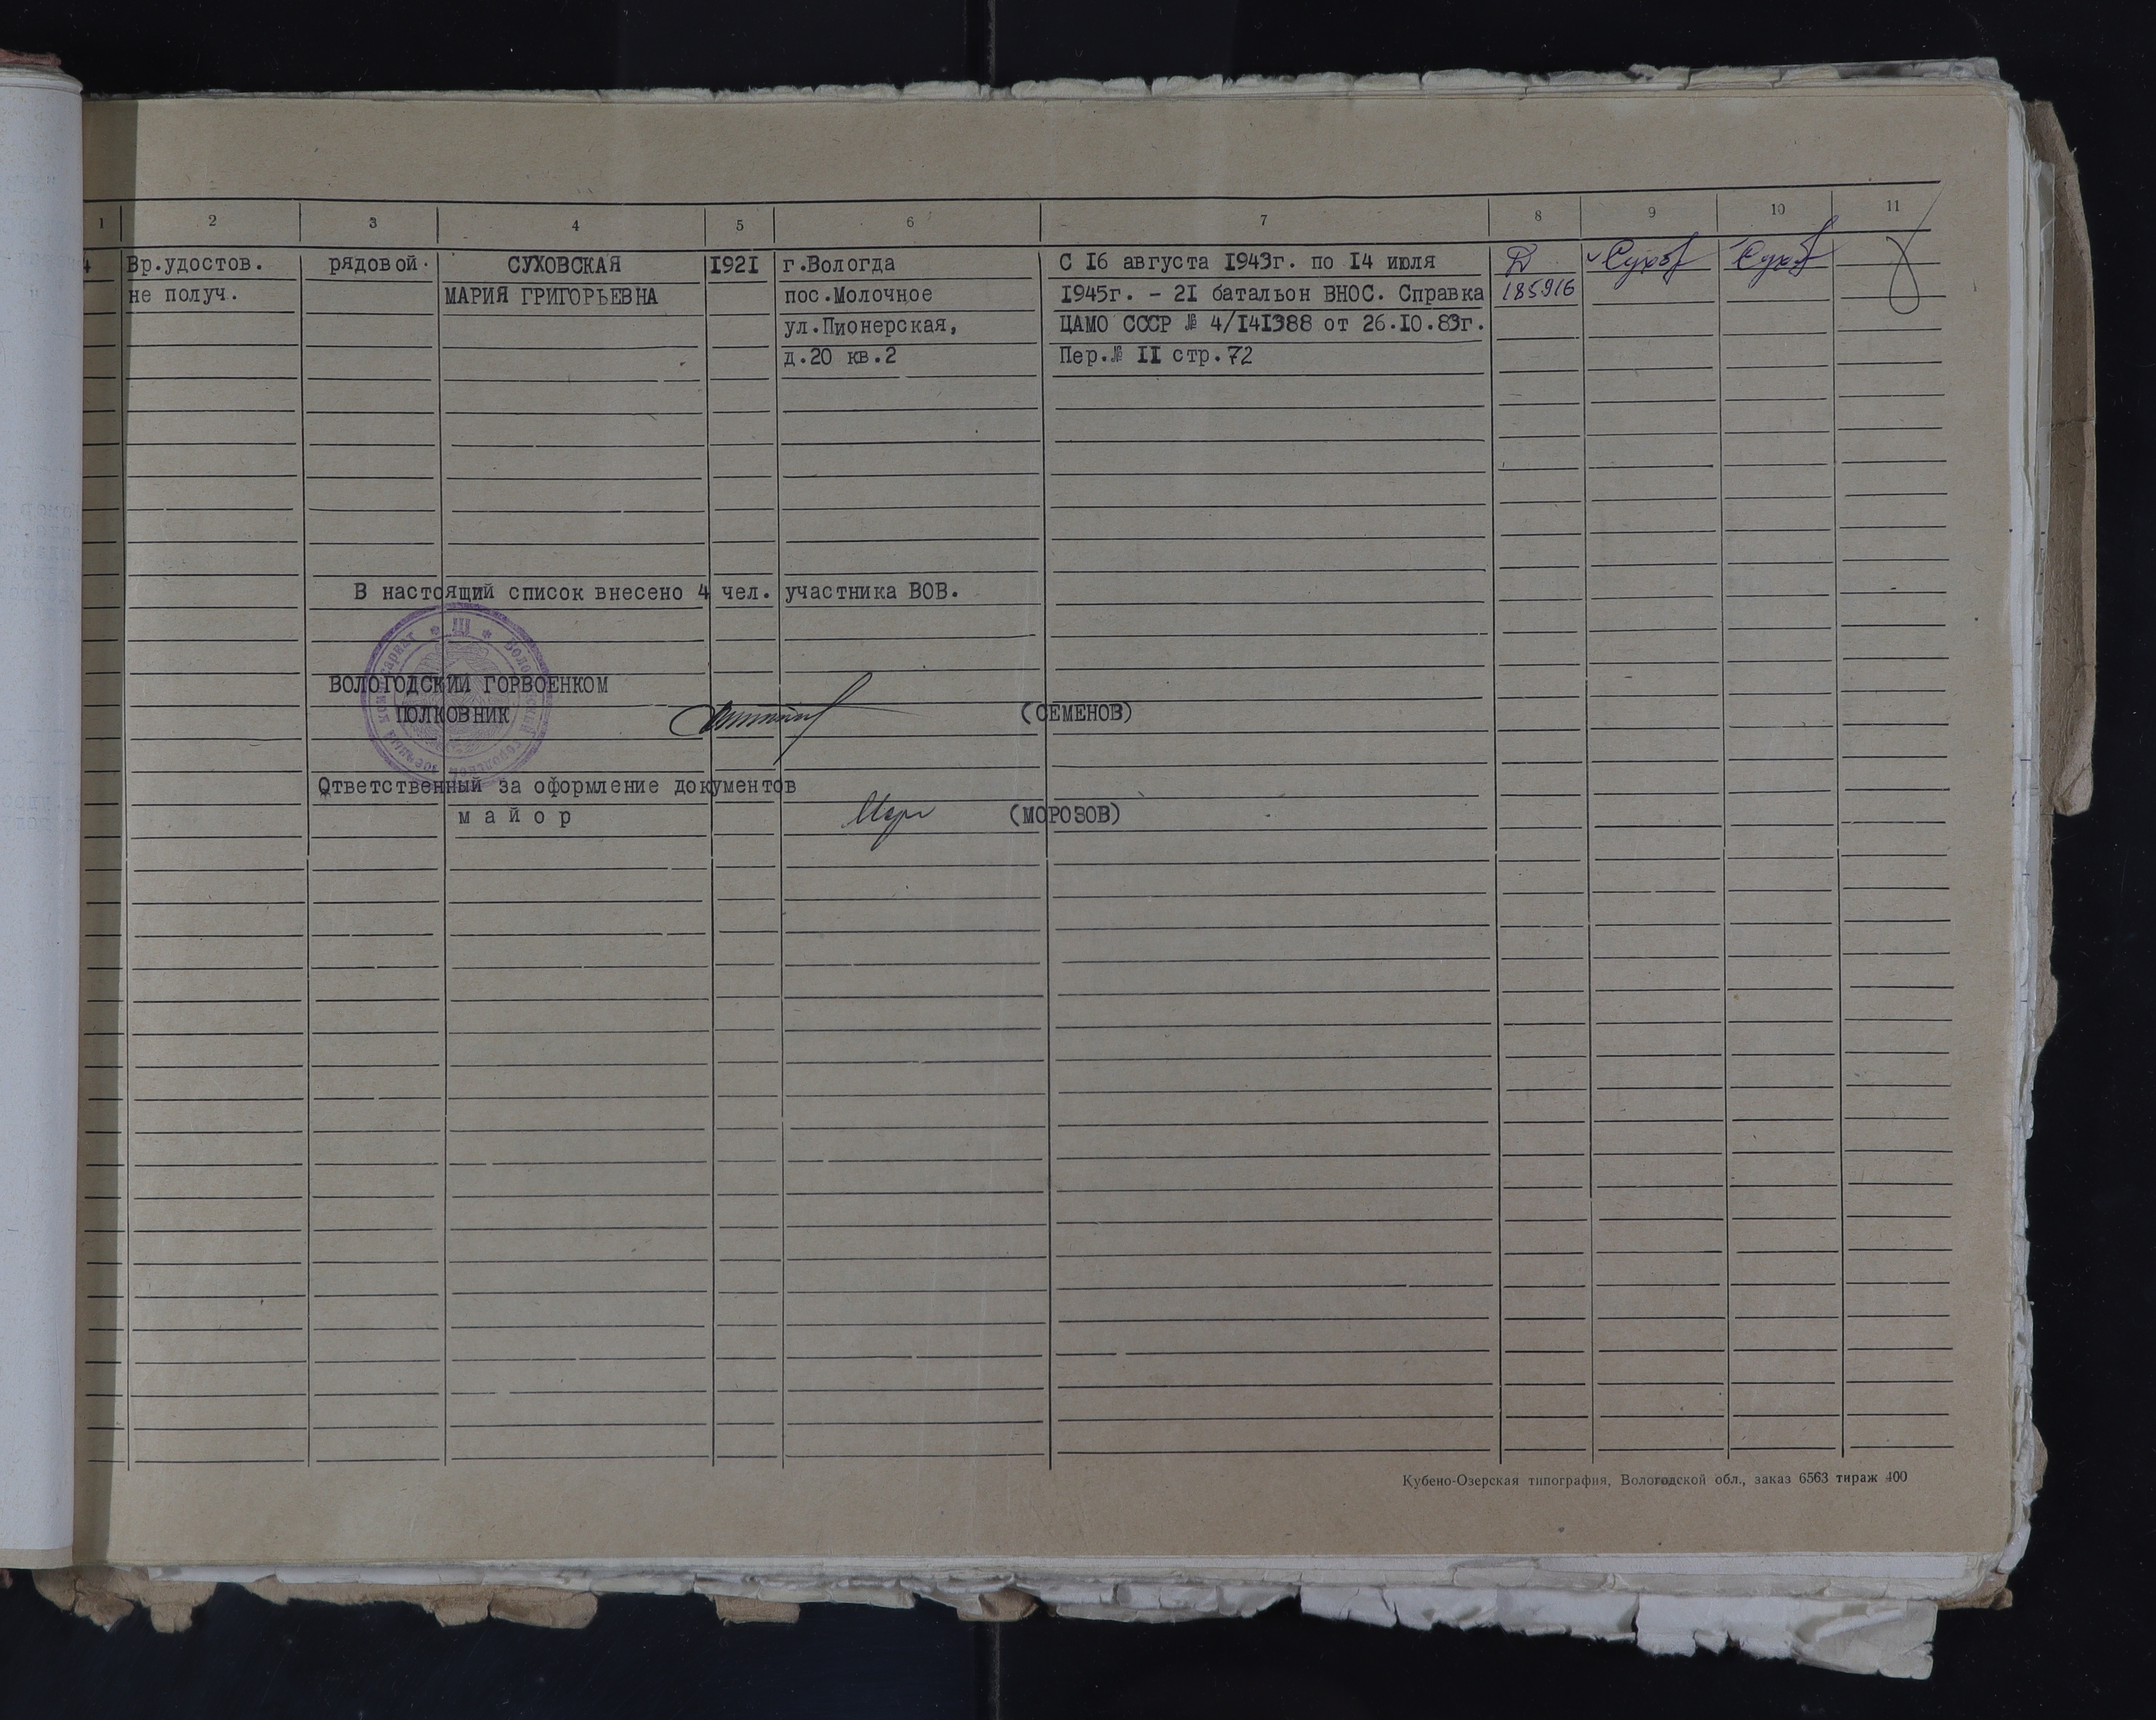 1 2 3 4 5 6 7 8 9 10 11
4 Вр.удостов. рядовой. СУХОВСКАЯ 1921 г.Вологда С 16 августа 1943г. по 14 июля Д Сухов Сухов
не получ. МАРИЯ ГРИГОРЬЕВНА пос.Молочное 1945г. - 21 батальон ВНОС. Справка 185916
ул.Пионерская, ЦАМО СССР № 4/141388 от 26.10.83г.
д.20 кв.2 Пер.№ II стр.72
В настоящий список внесено 4 чел. участника ВОВ.
ВОЛОГОДСКИЙ ГОРВОЕНКОМ
ПОЛКОВНИК (СЕМЕНОВ)
Ответственный за оформление документов
майор (МОРОЗОВ)
Кубено-Озерская типография, Вологодской обл., заказ 6563 тираж 400